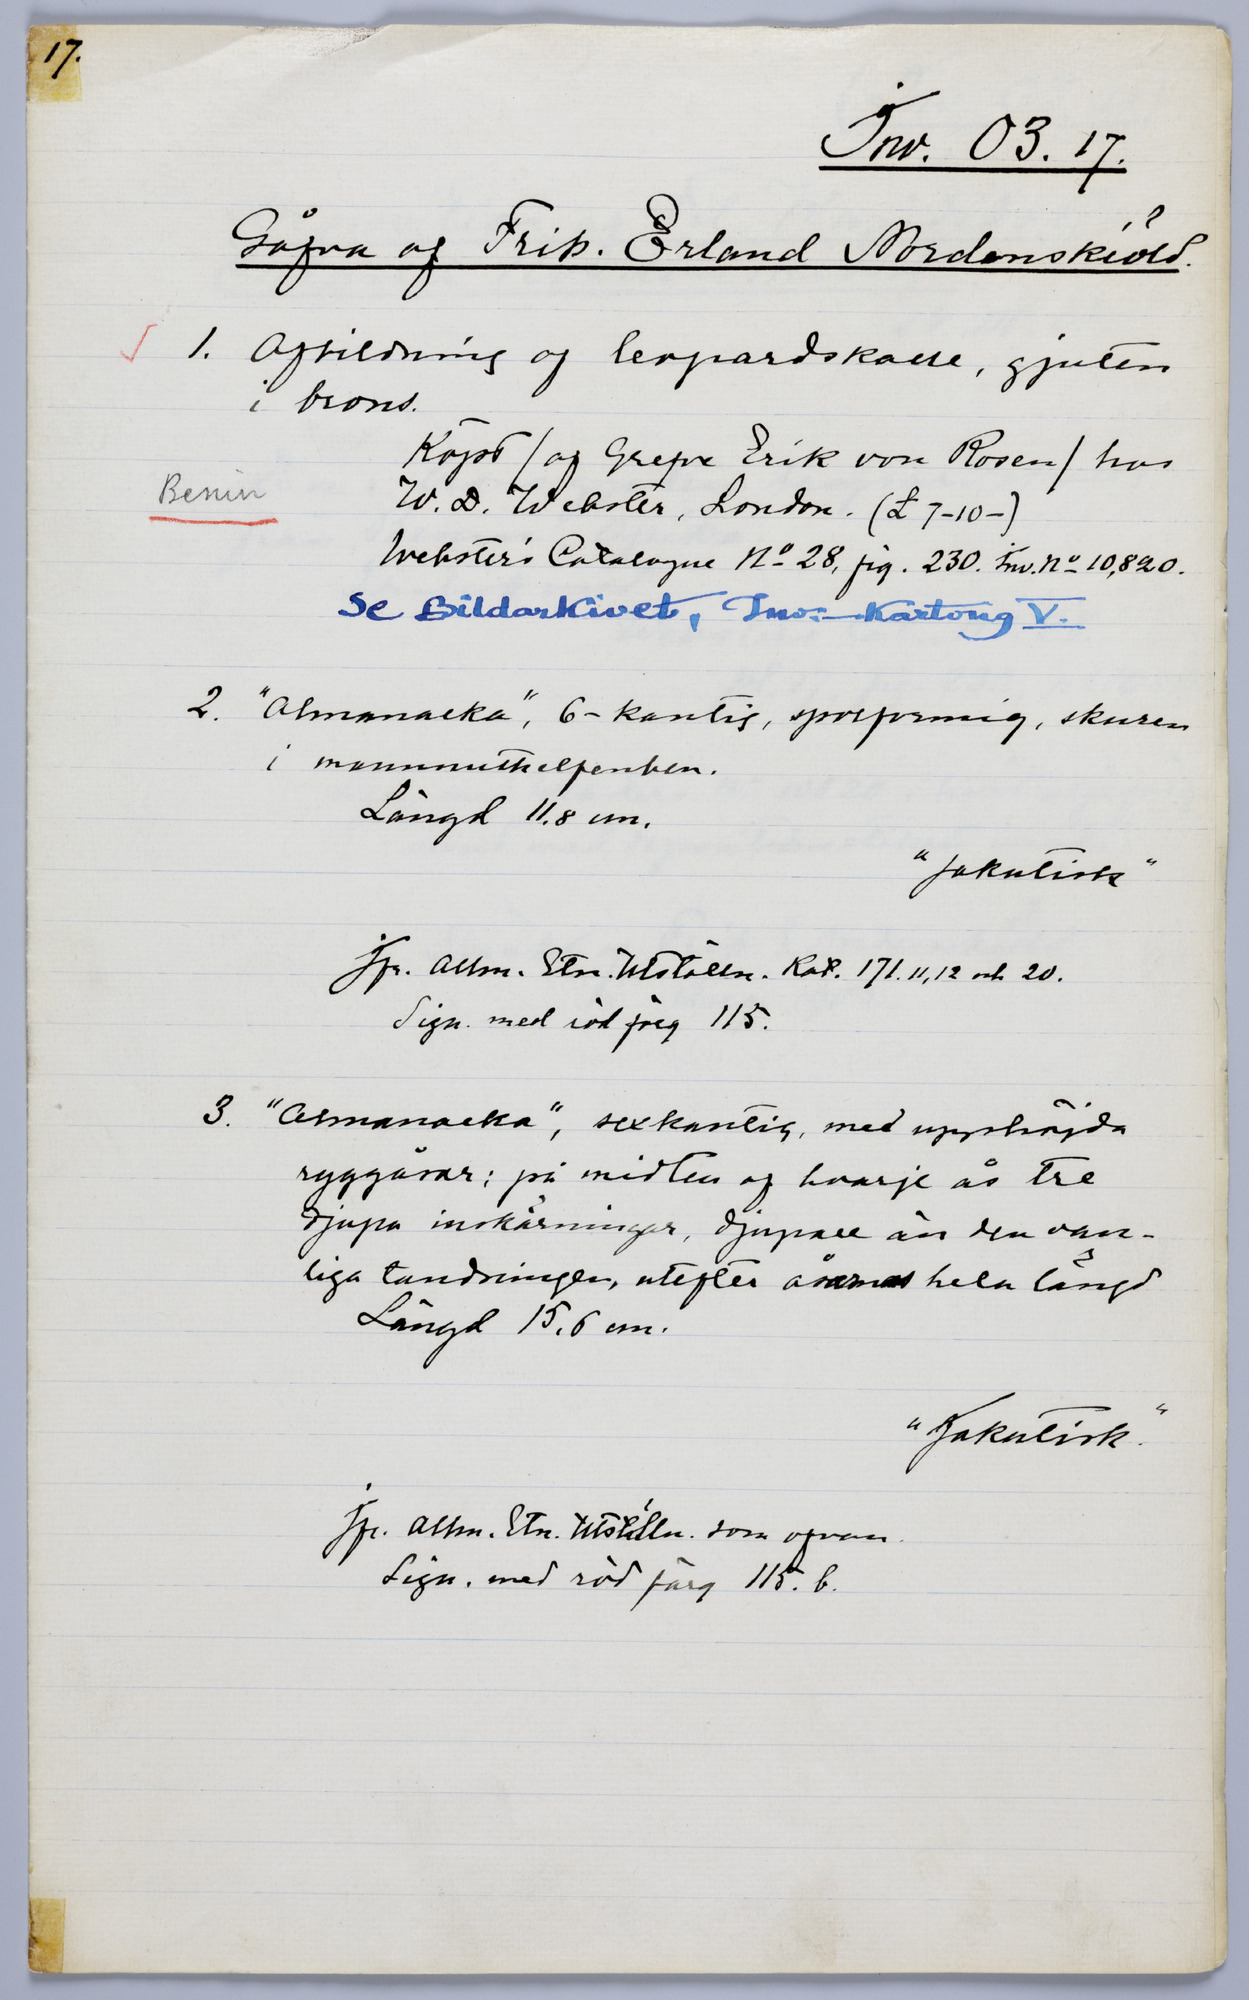 17.
Inv. 03.17.
Gåfva af Frih. Erland Nordenskiöld.
1. Afbildning af leopardskalle, gjuten
i brons.
Köpt /af Grefve Erik von Rosen/ hos
Benin
W. D. Webster, London. (£ 7-10-)
Webster's Catalogue No 28, fig. 230. Inv. No 10,820.
Se Bildarkivet, Inv:-Kartong V.
2. "Almanacka", 6-kantig, skuren
i mammuthelfenben.
Längd 11.8 cm.
"Jakutisk"
Jfr. Allm. Etn. Utställn. Kat. 171. 11, 12 och 20.
Sign. med röd färg 115.
3. "Almanacka", sexkantig, med upphöjda
ryggåsar; på midten af hvarje ås tre
djupa inskärningar, djupare än den van-
liga tandningen, utefter åsarnas hela längd
Längd 15.6 cm.
"Jakutisk."
Jfr. Allm. Etn. Utställn. som ofvan.
Sign. med röd färg 115. b.